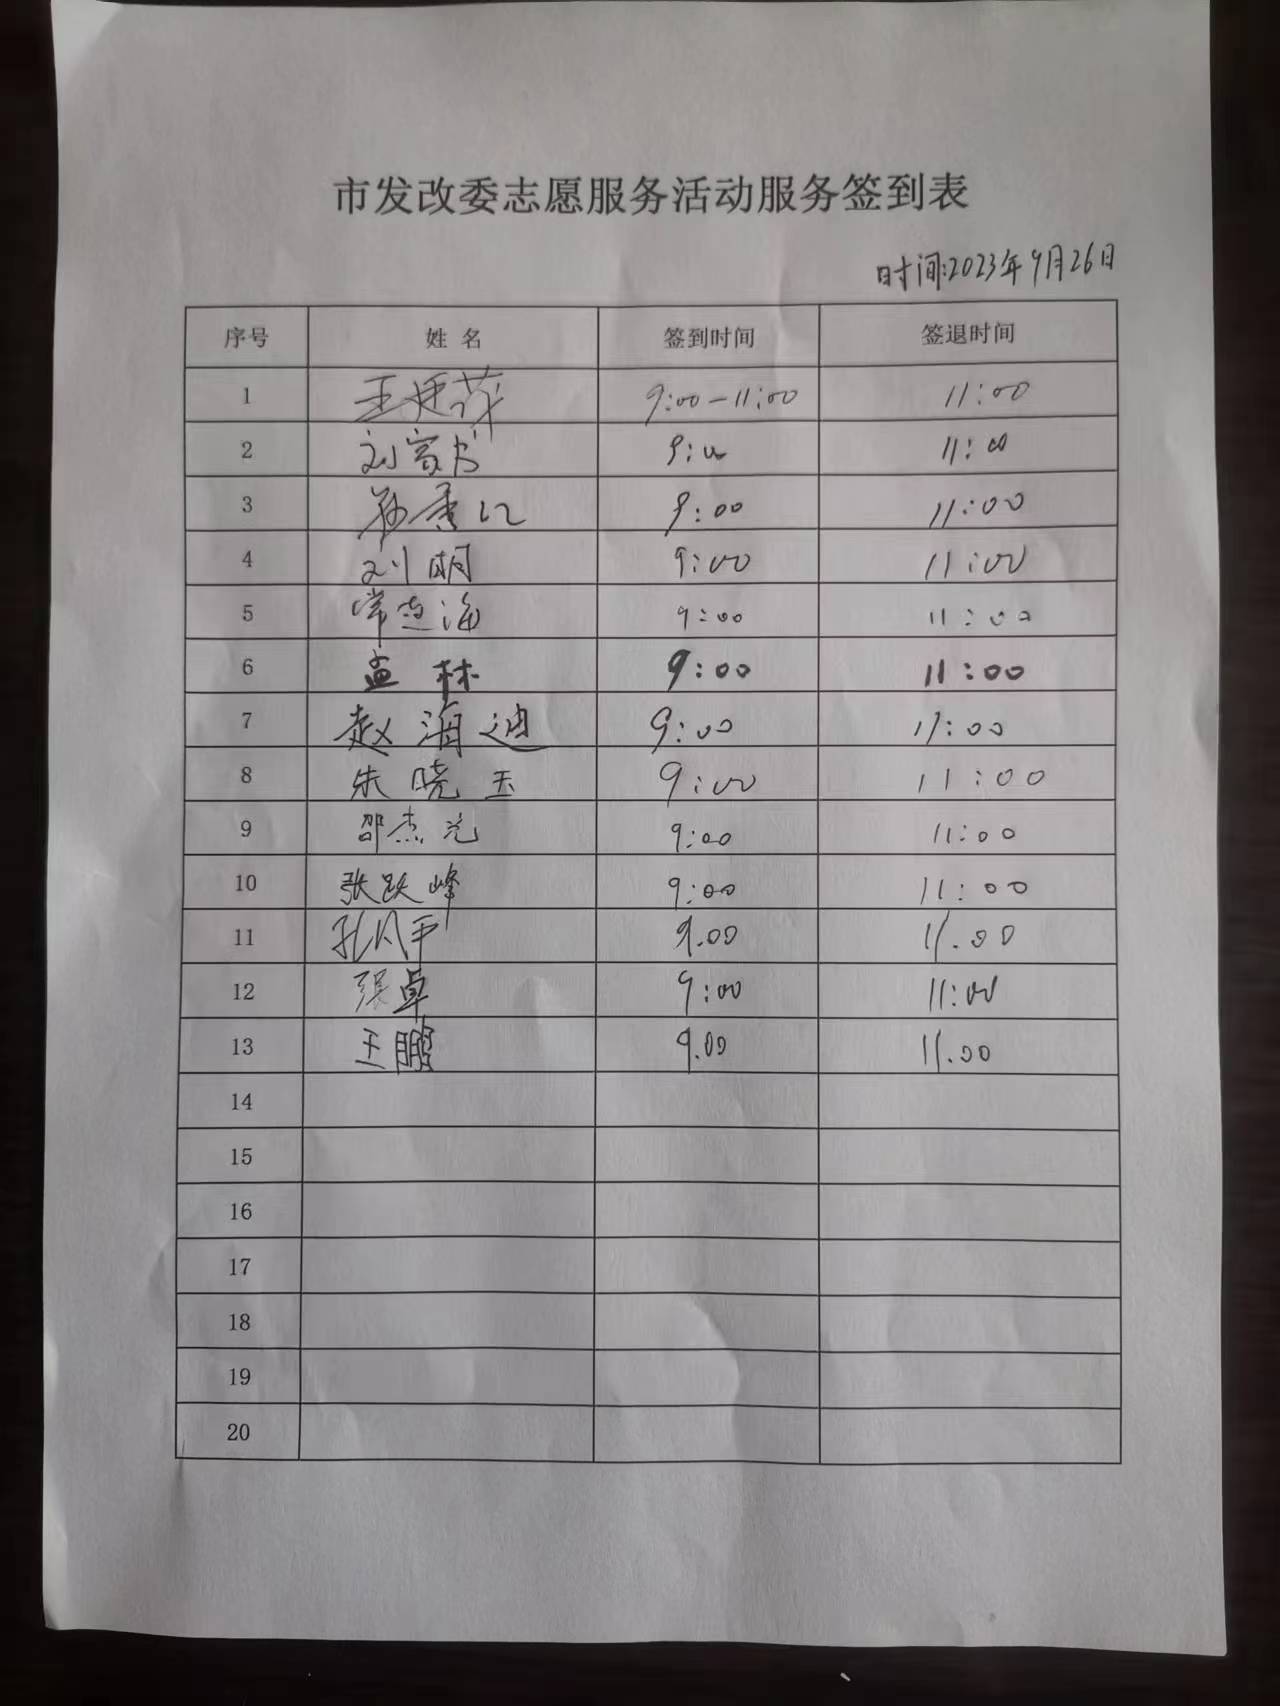 市发改委志愿服务活动服务签到表
时间:2023年9月26日
序号 姓 名 签到时间 签退时间
1 9:00-11:00 11:00
2 刘 9:00 11:00
3 孙 9:00 11:00
4 刘明 9:00 11:00
5 常 海 9:00 11:00
6 孟林 9:00 11:00
7 赵海迪 9:00 11:00
8 朱晓玉 9:00 11:00
9 邵杰光 9:00 11:00
10 张跃峰 9:00 11:00
11 孔凡平 9.00 11.00
12 張卓 9:00 11:00
13 王鹏 9.00 11.00
14
15
16
17
18
19
20